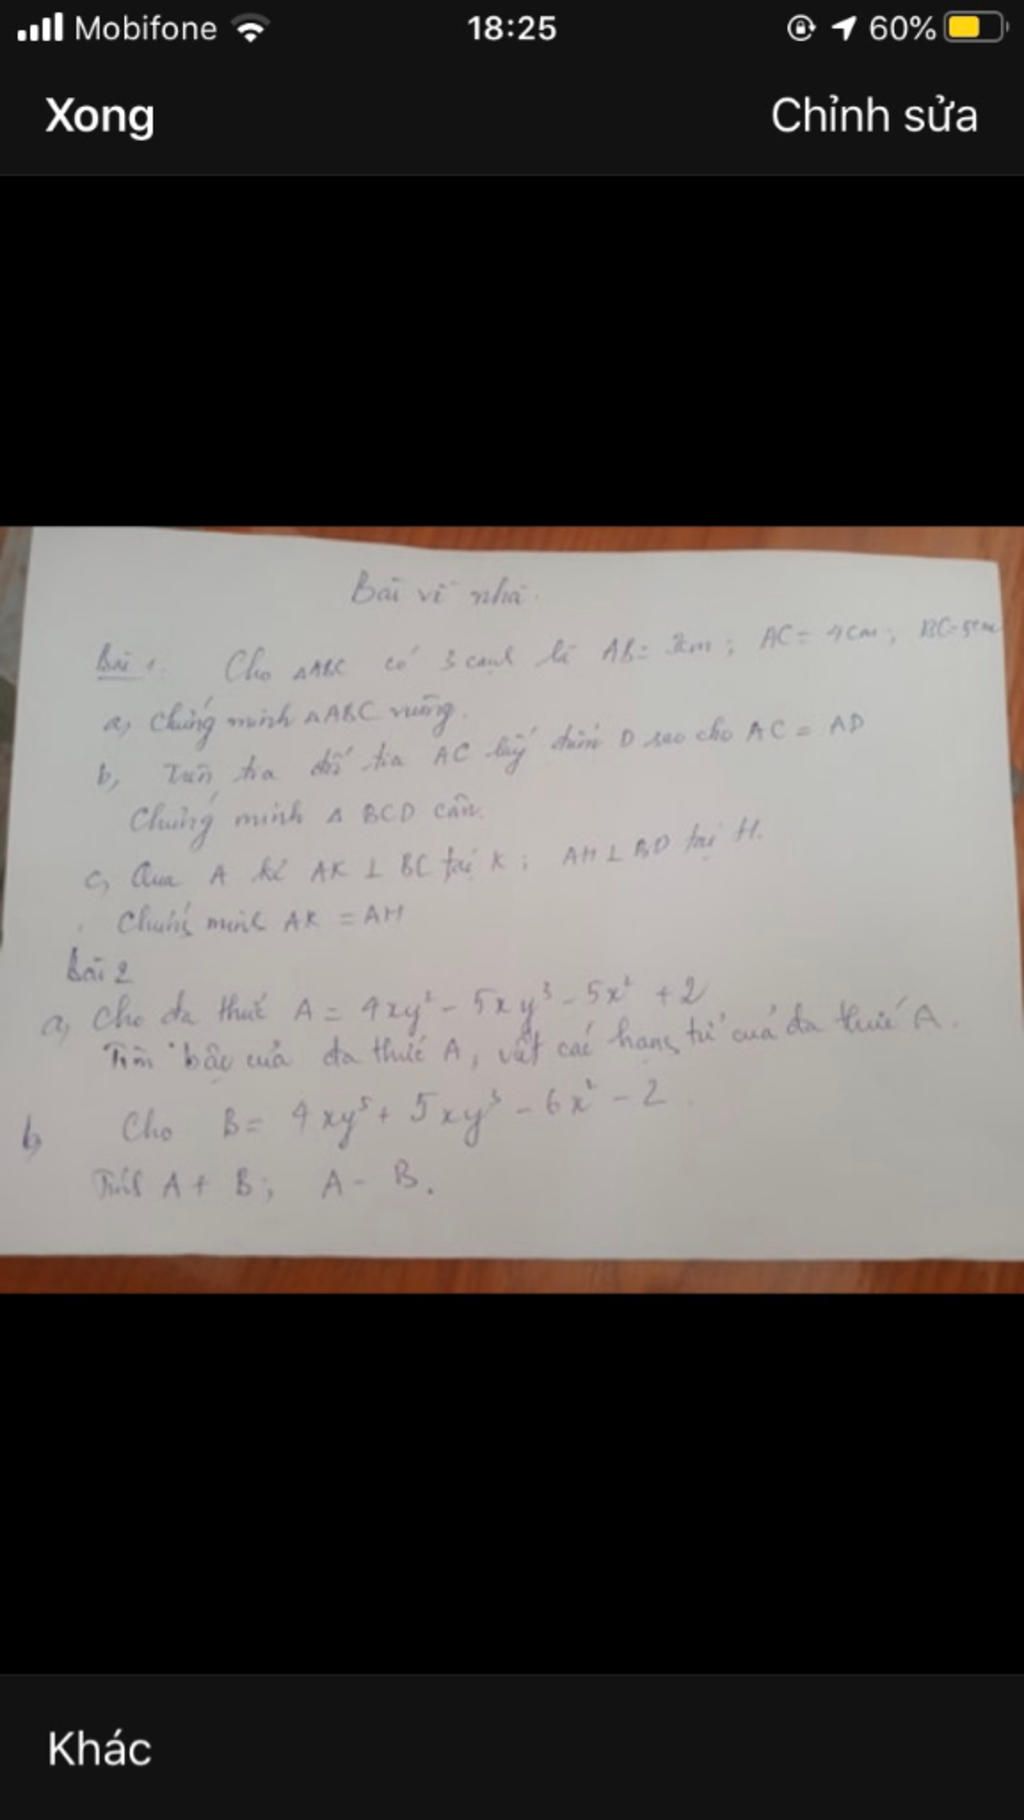 Mobifone 18:25 60%
Xong Chỉnh sửa
Bài về nhà.
Bài 1. Cho ΔABC có 3 cạnh là AB= 3cm; AC= 4cm; BC=5cm
a, Chứng minh ΔABC vuông.
b, Trên tia đối tia AC lấy điểm D sao cho AC = AD
Chứng minh Δ BCD cân.
c, Qua A kẻ AK ⊥ BC tại K; AH ⊥ BD tại H.
Chứng minh AK = AH
Bài 2
a, Cho đa thức A = 4xy² - 5xy³ - 5x² + 2
Tìm bậc của đa thức A, viết các hạng tử của đa thức A.
b, Cho B= 4xy⁵ + 5xy³ - 6x² - 2
Tính A + B; A - B.
Khác